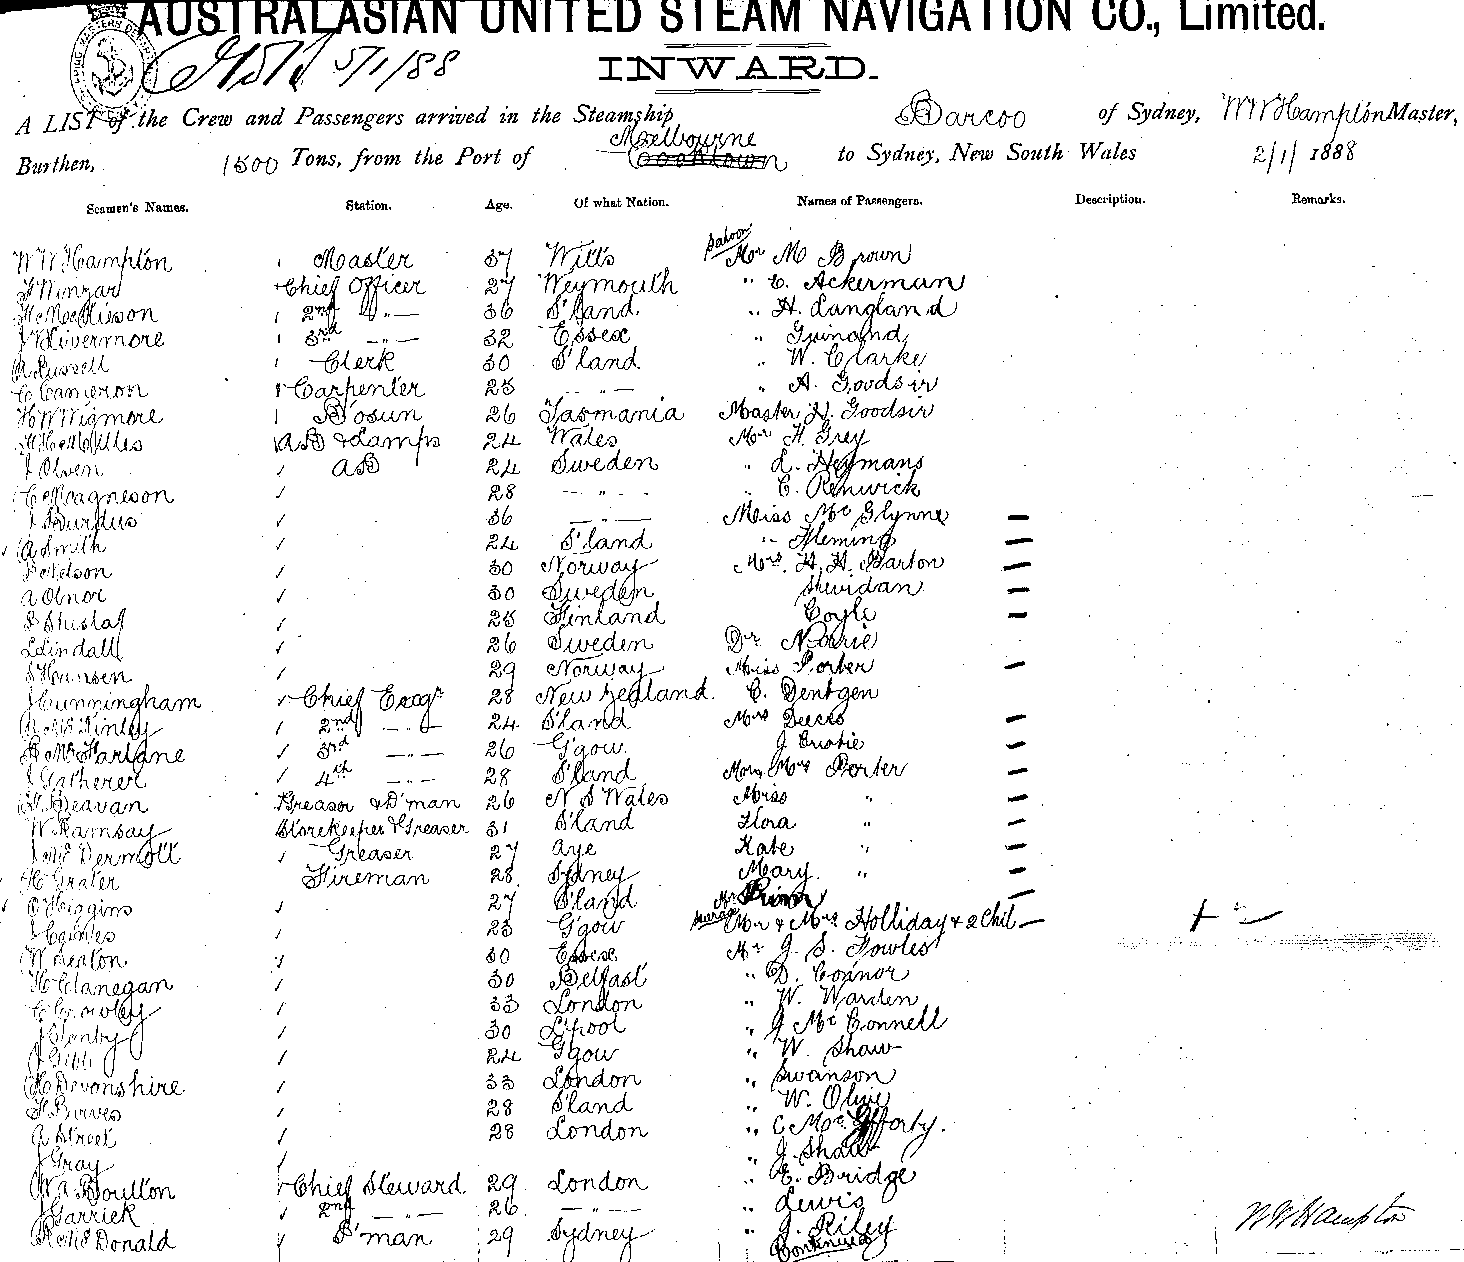 AUSTRALASIAN UNITED STEAM NAVIGATION CO., Limited.
5/1/88
INWARD.
A LIST of the Crew and Passengers arrived in the Steamship Barcoo of Sydney, W W Hampton Master,
Melbourne
Burthen, 1500 Tons, from the Port of Cooktown to Sydney, New South Wales 2/1/1888
Seamen's Names. Station. Age. Of what Nation. Names of Passengers. Description. Remarks.
Saloon
W W Hampton Master 37 Wilts Mr M Brown
Winzar Chief Officer 27 Weymouth " C. Ackerman
2nd " 36 S'land " H. Langland
Livermore 3rd " 32 Essex " Guinand
A Russell Clerk 30 S'land " W. Clarke
C Cameron Carpenter 25 " A. Goodsir
H W Wigmore B'osun 26 Tasmania Master H. Goodsir
AB & Lamps 24 Wales Mr H. Grey
J Olsen AB 24 Sweden " L. Heymans
C Magneson 28 " " C. Renwick
J Burdus 36 " Miss McGlynne
A Smith 24 S'land " Fleming
Nelson 30 Norway Mrs. H. H. Barton
A Olnor 30 Sweden Sheridan
25 Finland Coyle
Lindall 26 Sweden Dr Norrie
Hansen 29 Norway Miss Porter
J Cunningham Chief Engr 28 New Zealand C. Dentgen
McKinley 2nd " 24 S'land Mrs
McFarlane 3rd " 26 G'gow J.
J Gatherer 4th " 28 S'land Mrs Porter
Beavan Greaser & D'man 26 N S Wales Miss "
W. Ramsay Storekeeper & Greaser 31 S'land Flora "
J McDermott Greaser 27 Aye Kate "
H Grater Fireman 28 Sydney Mary "
O Higgins 27 S'land Mr
Steerage
J Caines 23 G'gow Mr & Mrs Holliday & 2 Chil
W Heaton 30 Essex Mr J. S. Fowles
H Clanegan 30 Belfast " D. Connor
C Crowley 33 London " W. Warden
J 30 L'pool " J McConnell
J Gibb 24 G'gow " W. Shaw
H Devonshire 33 London " Swanson
28 S'land " W. Olive
A Street 28 London " C
J Gray " J. Shaw
W A Boulton Chief Steward 29 London " E. Bridge
J Garrick 2nd " 26 " " Lewis
R McDonald P'man 29 Sydney " J. Riley
Continued
W W Hampton